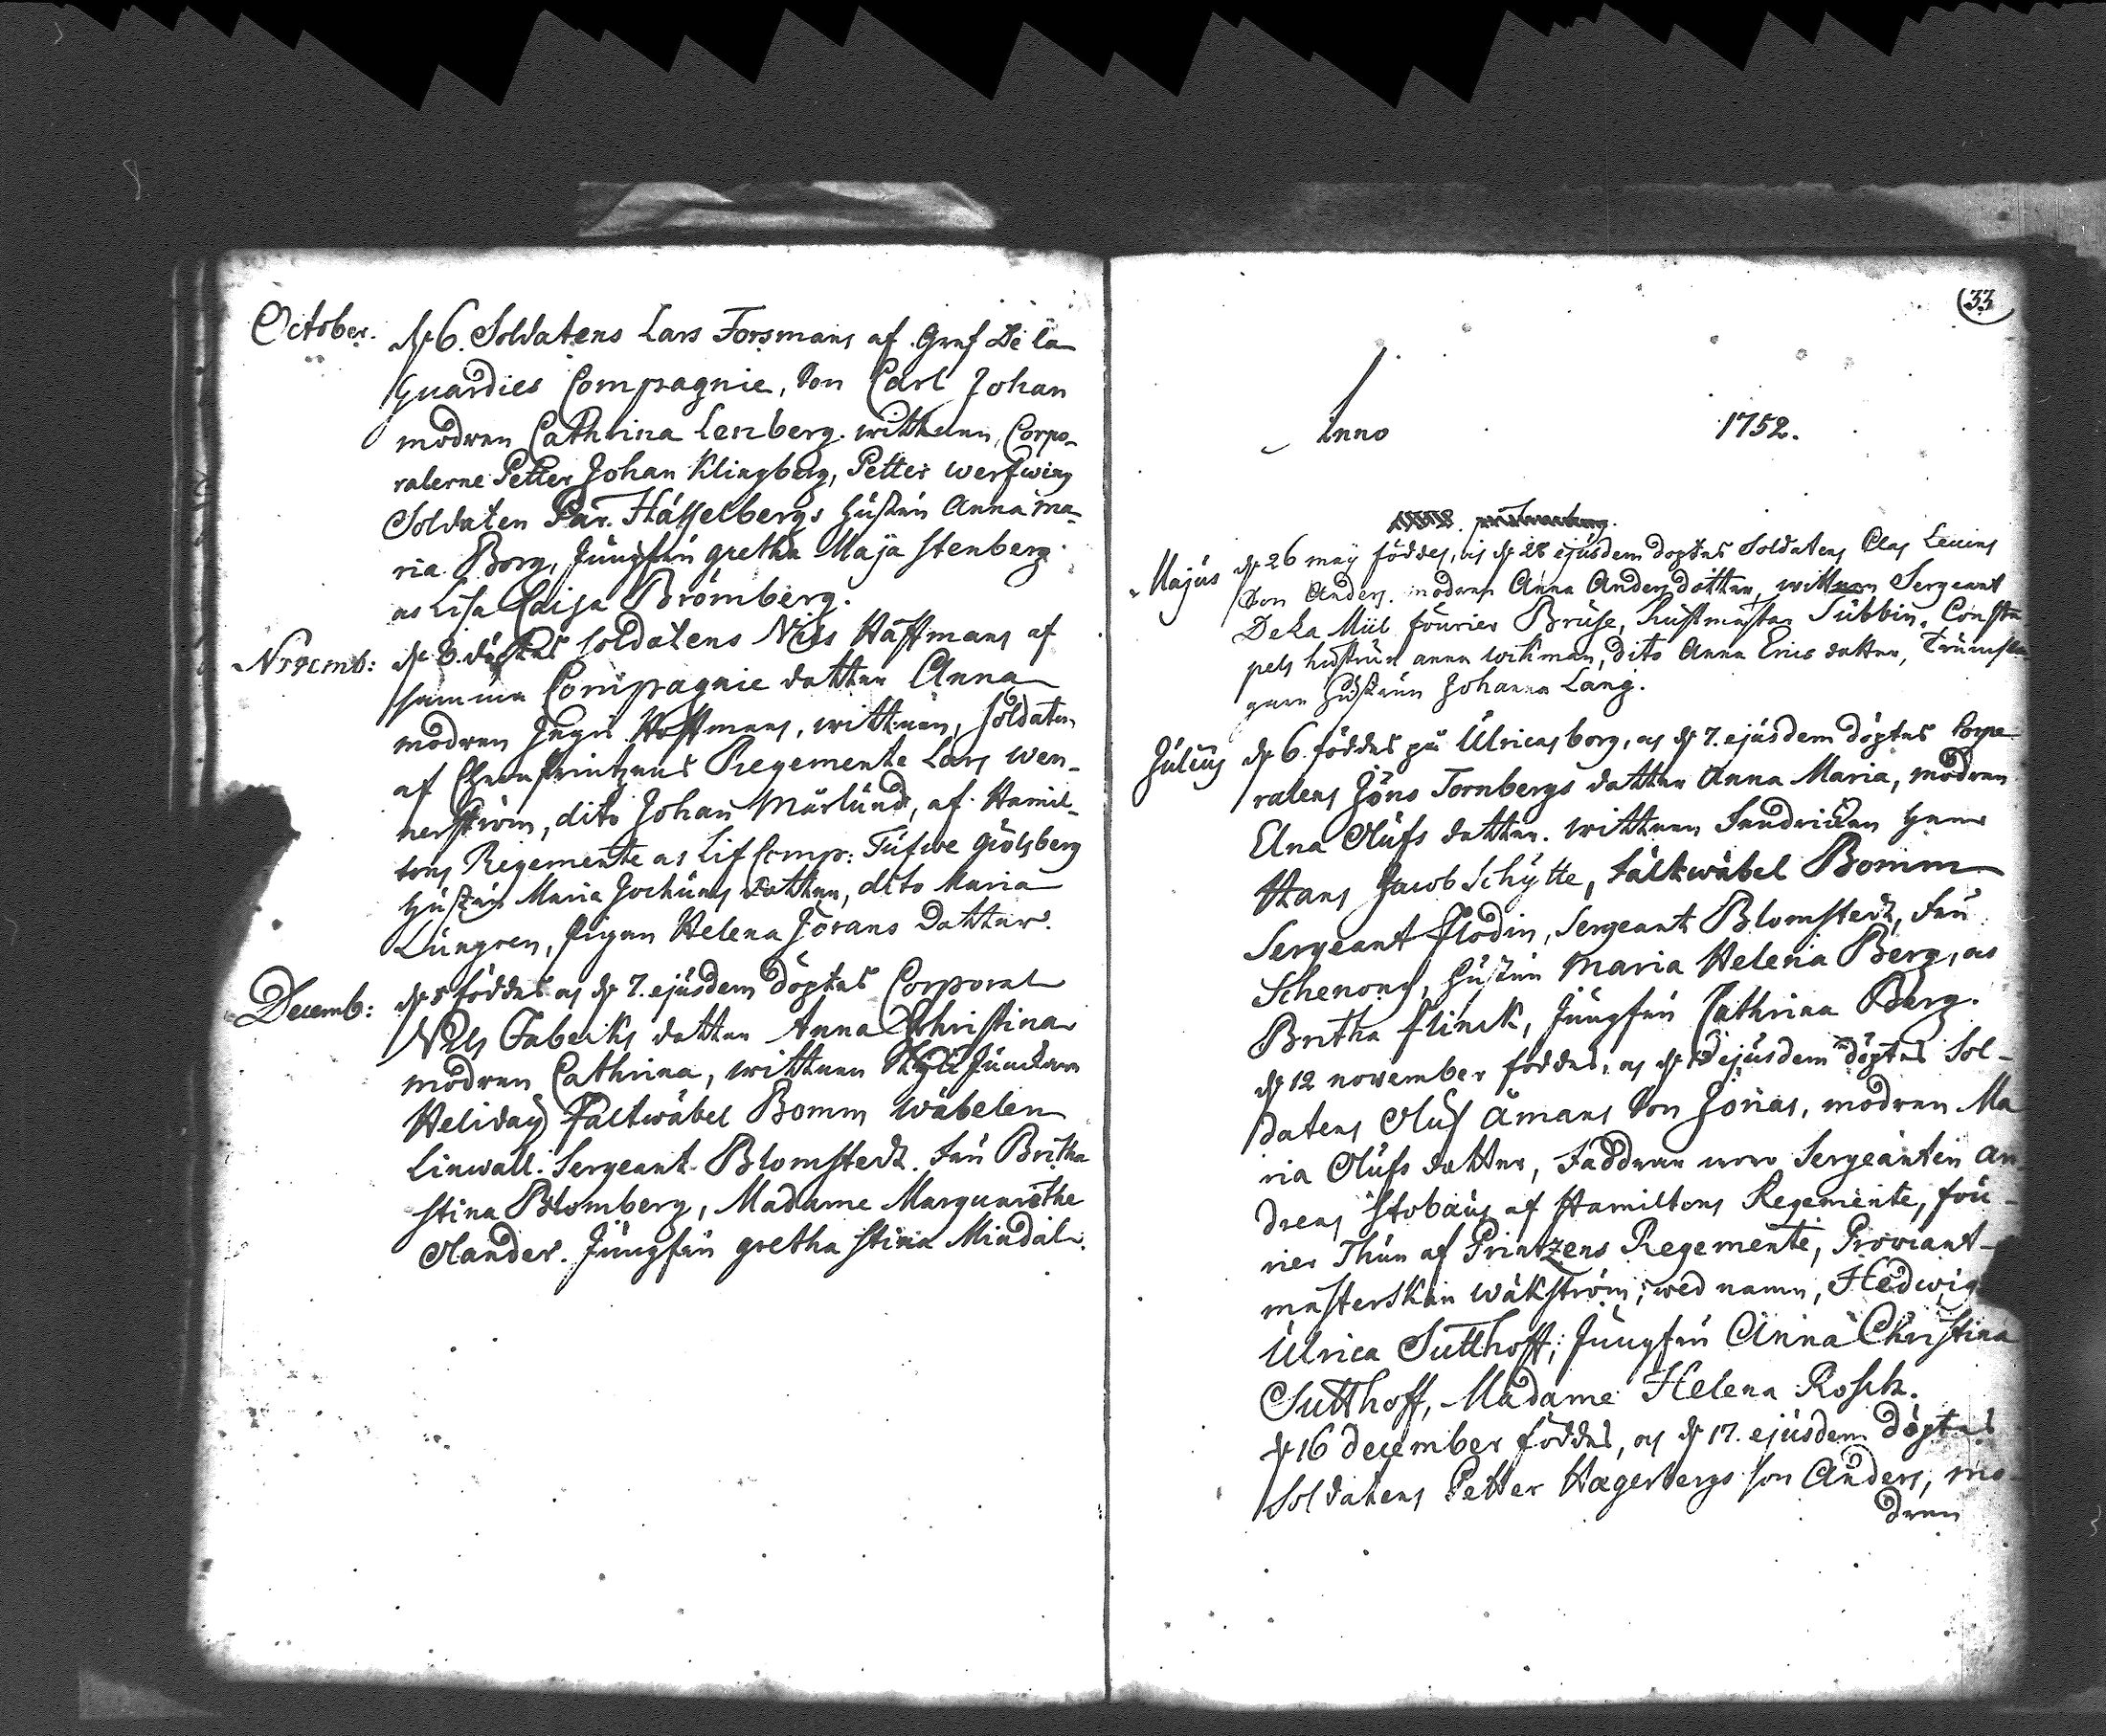 October. d. 6. Soldatens Lars Forsmans af Graf De la
Guardies Compagnie, son Carl Johan
modren Cathrina Lenberg. wittnen, Corpo-
ralerne Petter Johan Klingberg, Petter werfwing
Soldaten Pär. Hässelbergs hustru Anna ma-
ria Borg, Jungfru gretha Maja stenberg.
as Lisa Caisa Brömberg.
Novemb: d. 8. döptes soldatens Nils Haffmans af
samma Compagnie dotter Anna
modren Jngri Hoffmans, wittnen, soldaten
af Ehrenprintzens Regemente Lars wen-
nerström, dito Johan Märlund, af Hamil-
tons Regemente as Lif Comp: Tufwe
hustru Maria Jochums dotter, dito Maria
Lungren, pigan Helena Jörans dotter.
Decemb: d. 5 föddes as d. 7. ejusdem döptes Corporal
Nils Fabecks dotter Anna Christina
modren Cathrina, wittnen Junkern
Heliday Faltwäbel Bomm wäbelen
Linwall. Sergeant Blomstedt. Fru Britha
stina Blomberg, Madame Margarethe
Olander. Jungfru gretha stina Mindal.
33
Anno 1752.
Majus d. 26 maij föddes, as d. 28 ejusdem doptes Soldatens Clas Levins
son Anders. modren Anna Anders dotter, wittnen Sergeant
De la Mül fourier Bruse, Rustmästar Tubbin, Consta
pels hustrun anna wikman, dito Anna Erics dotter, Trumsla
garn hustrun Johanna Lang.
Julius d. 6. föddes på Ulricasborg, as d. 7. ejusdem döptes Corpo-
ralens Jöns Tornbergs dotter Anna Maria, modren
Elna Olufs dotter. wittnen Fendricken
Hans Jacob Schytte, Fältwäbel Bomm
Sergeant Flodin, Sergeant Blomstedt, Fru
Schenong, hustru Maria Helena Berg, as
Britha Flinck, Jungfru Cathrina Berg.
d. 12 november föddes, as d. ejusdem döptes Sol-
datens Oluf Åmans son Jonas, modren Ma
ria Olufs dotter, Faddren woro Sergeanten An
dreas Stobaus af Hamiltons Regemente, fou-
rier Thun af Printzens Regemente, Proviant-
mästerskan Wäkström; wed namn, Hedwig
Ulrica Sutthoff; Jungfru Anna Christina
Sutthoff, Madame Helena Rosch.
d. 16 december föddes, as d. 17. ejusdem döptes
soldatens Petter Hagerbergs son Anders, mo-
dren